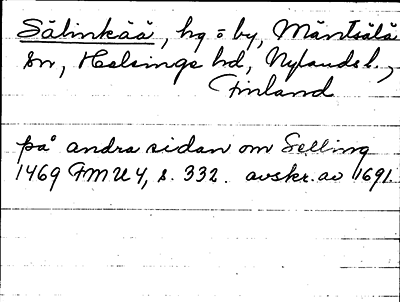 Sälinkää, hg o by, Mäntsälä
sn, Helsinge hd, Nylands l.,
Finland
på andra sidan om Selling
1469 FMU 4, s. 332. avskr. av 1691